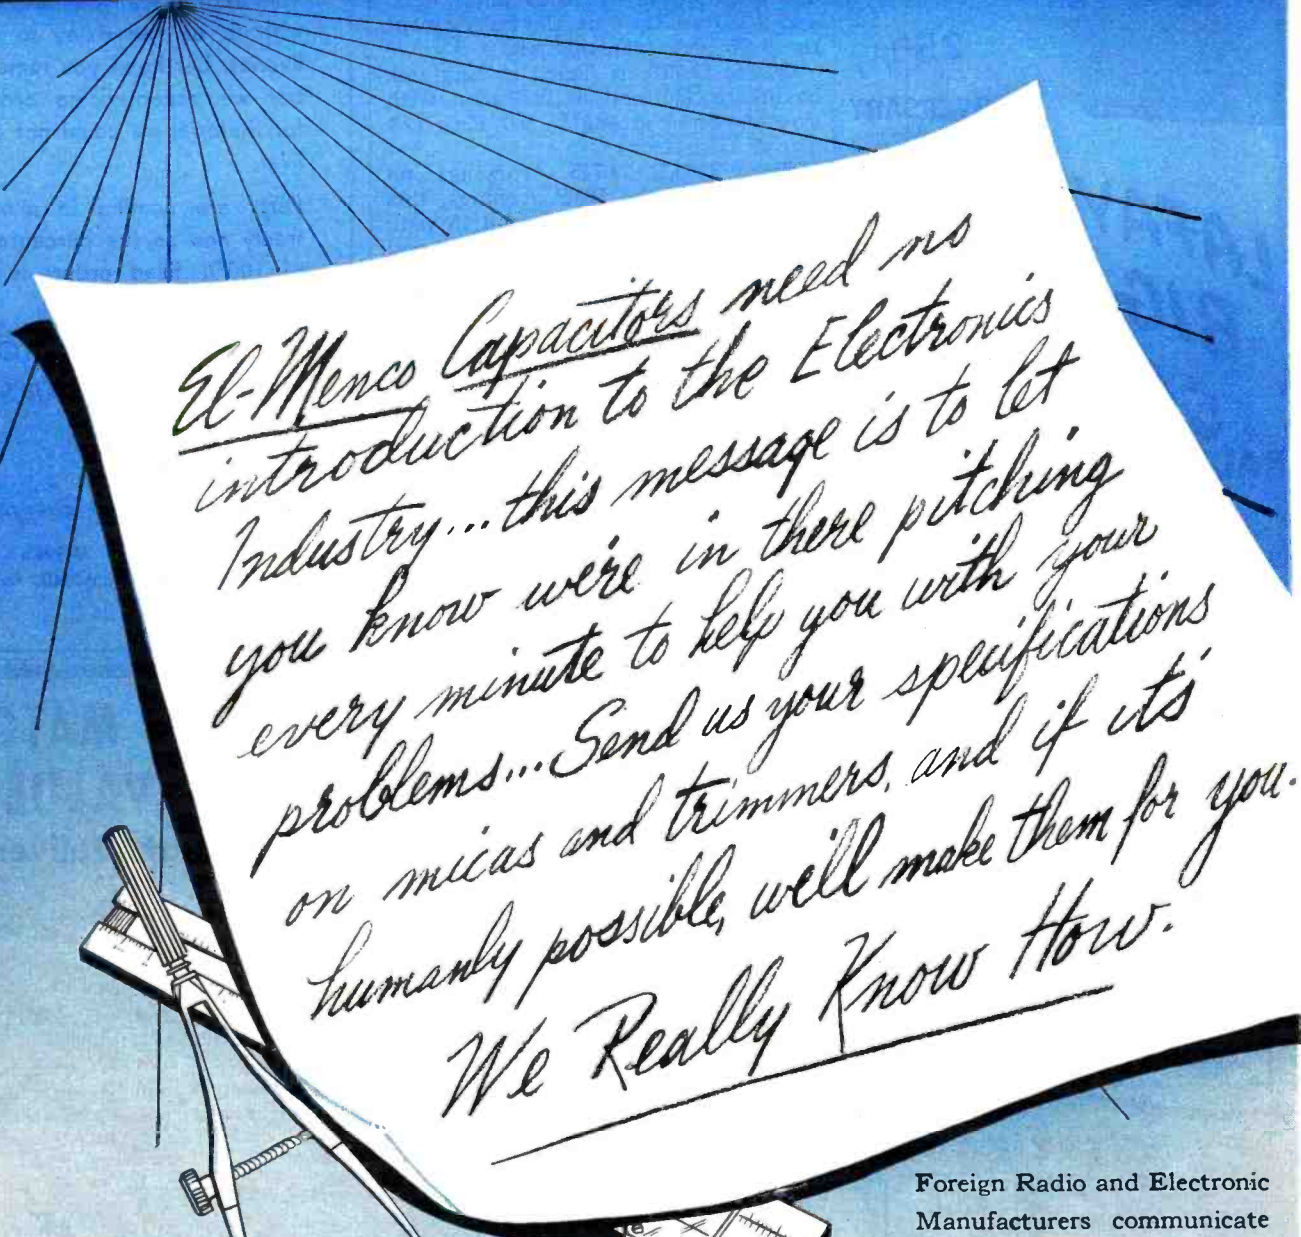 El-Menco Capacitors need no
introduction to the Electronics
Industry...this message is to let
you know we're in there pitching
every minute to help you with your
problems...Send us your specifications
on micas and trimmers, and if it's
humanly possible, we'll make them for you.
We Really Know How.
Foreign Radio and Electronic
Manufacturers communicate